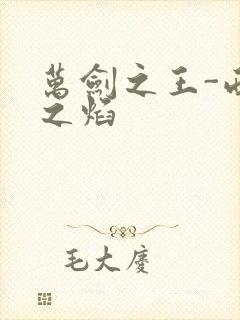 萬劍之王-
之焰
毛大慶